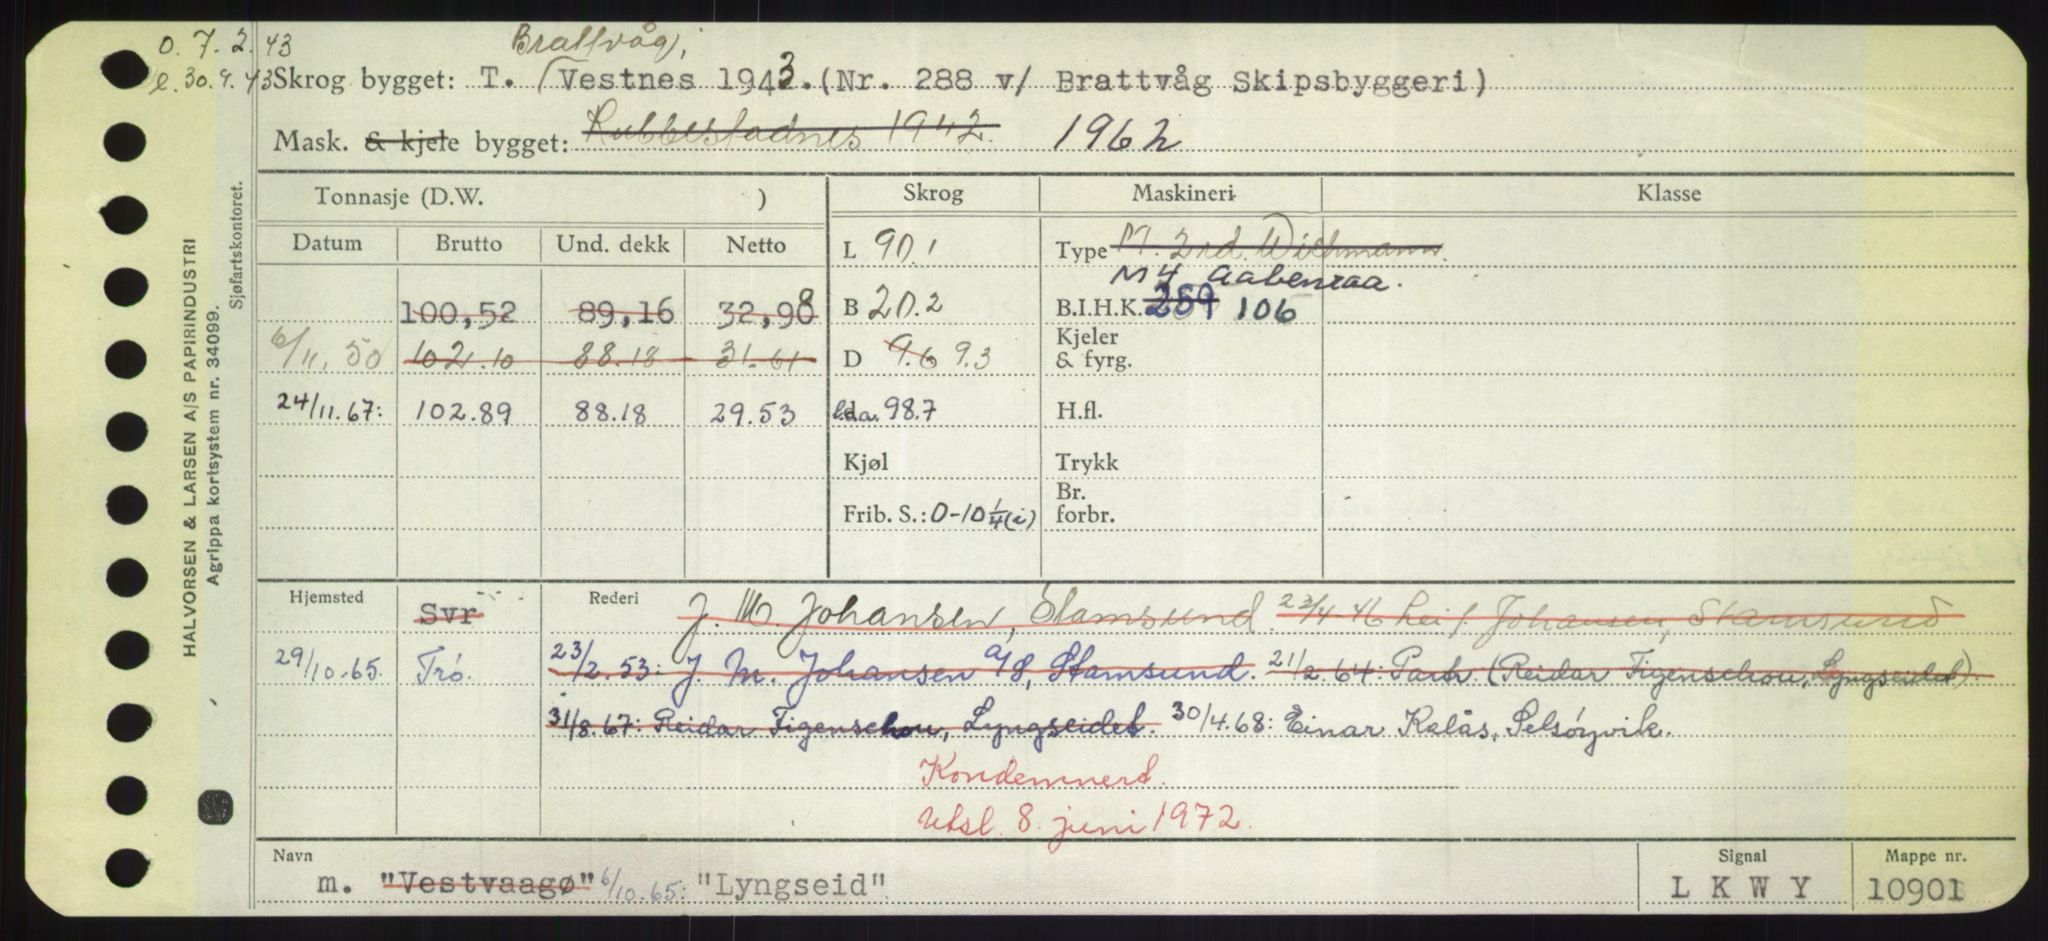 O. 7. 2. 43
Brattvåg,
l. 30.9.43 Skrog bygget: T. Vestnes 1943. (Nr. 288 v/ Brattvåg Skipsbyggeri)
Mask. & kjele bygget: Rubbestadnes 1942. 1962
Tonnasje (D.W. ) Skrog Maskineri Klasse
Datum Brutto Und. dekk Netto L 90.1 Type M. 2rd. Wichmann.
M 4 Aabenraa.
100,52 89,16 32,98 B 20.2 B.I.H.K. 259 106
6/11.50 102.10 88.18 31.61 D 9.6 9.3 Kjeler
& fyrg.
24/11.67: 102.89 88.18 29.53 l.o.a. 98.7 H.fl.
Kjøl Trykk
Frib. S.: 0-10 1/4 (i) Br.
forbr.
Hjemsted Svr Rederi J. M. Johansen, Stamsund. 23/4-46 Leif Johansen, Stamsund
29/10.65. Trö. 23/2.53: J. M. Johansen A/S, Stamsund. 21/2 64: Partr. (Reidar Figenschou, Lyngseidet).
31/8.67: Reidar Figenschou, Lyngseidet. 30/4.68: Einar Kalås, Selsöyvik.
Kondemnert.
Utsl. 8. juni 1972.
Navn Signal Mappe nr.
m. "Vestvaagø" 6/10.65: "Lyngseid" L K W Y 10901
HALVORSEN & LARSEN A/S PAPIRINDUSTRI
Agrippa kortsystem nr. 34099.
Sjøfartskontoret.